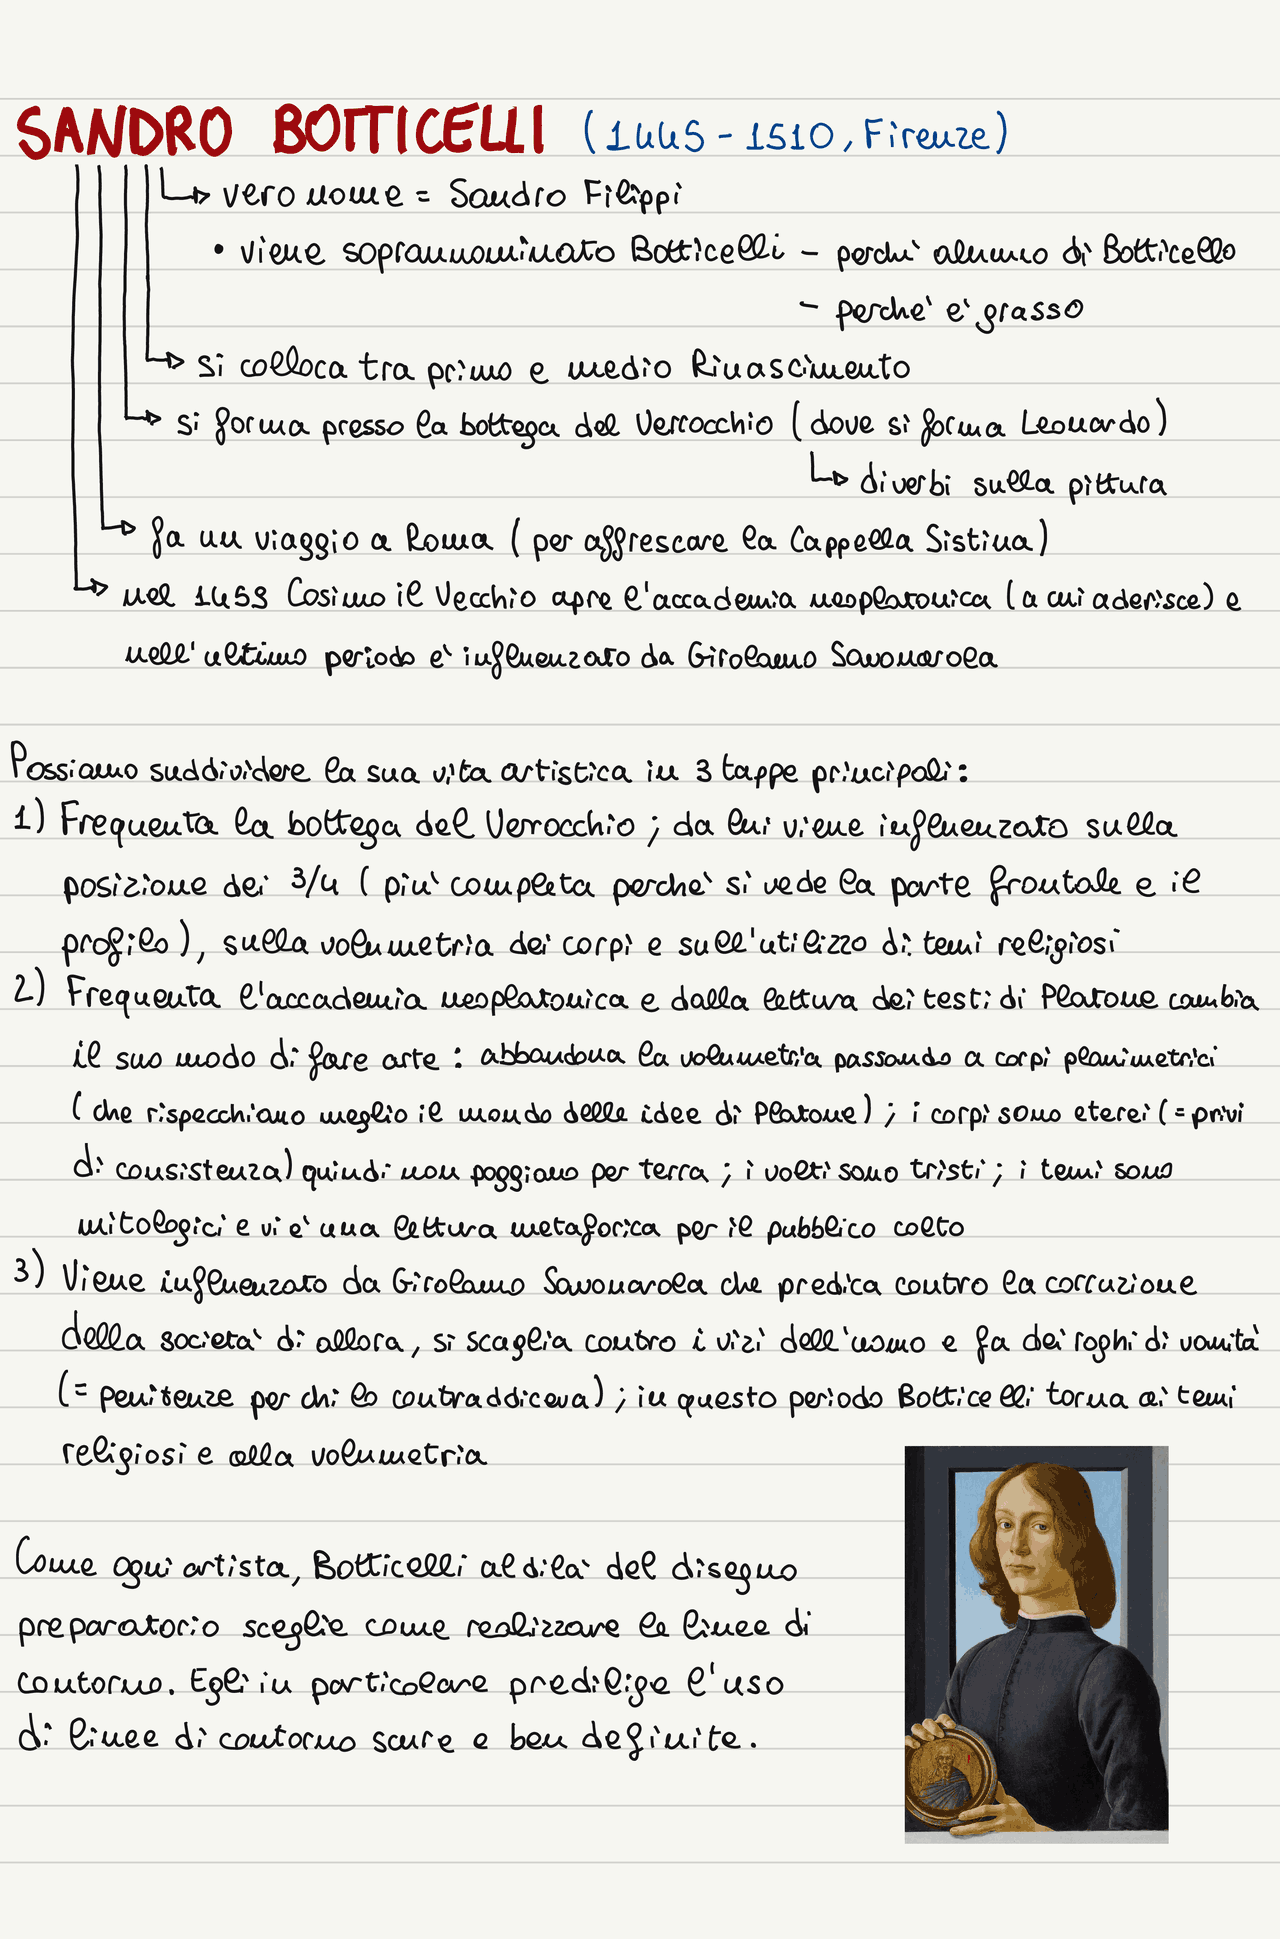 SANDRO BOTTICELLI (1445-1510, Firenze)
vero nome = Sandro Filippi
• viene soprannominato Botticelli - perchè alunno di Botticello
- perchè è grasso
si colloca tra primo e medio Rinascimento
si forma presso la bottega del Verrocchio (dove si forma Leonardo)
diverbi sulla pittura
fa un viaggio a Roma (per affrescare la Cappella Sistina)
nel 1459 Cosimo il Vecchio apre l'accademia neoplatonica (a cui aderisce) e
nell'ultimo periodo è influenzato da Girolamo Savonarola
Possiamo suddividere la sua vita artistica in 3 tappe principali:
1) Frequenta la bottega del Verrocchio; da lui viene influenzato sulla
posizione dei 3/4 (più completa perchè si vede la parte frontale e il
profilo), sulla volumetria dei corpi e sull'utilizzo di temi religiosi
2) Frequenta l'accademia neoplatonica e dalla lettura dei testi di Platone cambia
il suo modo di fare arte: abbandona la volumetria passando a corpi planimetrici
(che rispecchiano meglio il mondo delle idee di Platone); i corpi sono eterei (=privi
di consistenza) quindi non poggiano per terra; i volti sono tristi; i temi sono
mitologici e vi è una lettura metaforica per il pubblico colto
3) Viene influenzato da Girolamo Savonarola che predica contro la corruzione
della società di allora, si scaglia contro i vizi dell'uomo e fa dei roghi di vanità
(= penitenze per chi lo contraddiceva); in questo periodo Botticelli torna ai temi
religiosi e alla volumetria
Come ogni artista, Botticelli al di là del disegno
preparatorio sceglie come realizzare le linee di
contorno. Egli in particolare predilige l'uso
di linee di contorno scure e ben definite.